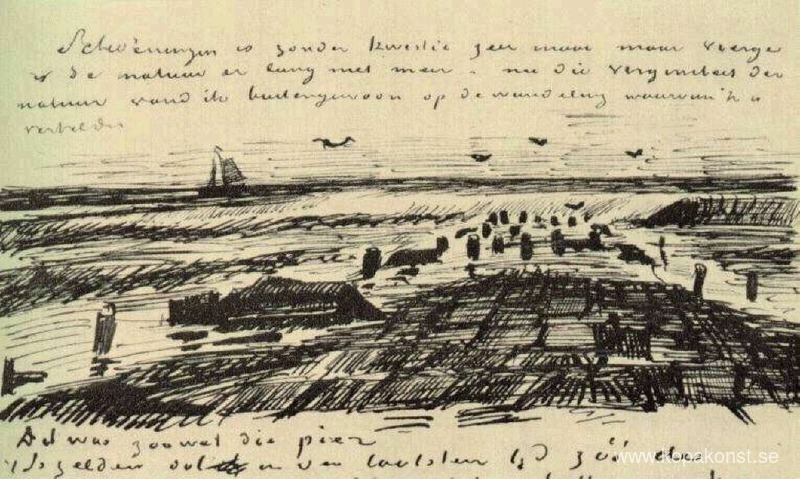 Scheveningen is zonder kwestie zeer mooi maar vroege
is de natuur er lang niet meer. nu die
natuur vond ik buitengewoon op de wandeling waarvan ik u
vertelde
Dit was zoowat die pier
zelden in den laatsten tijd zóó
www.kopakonst.se